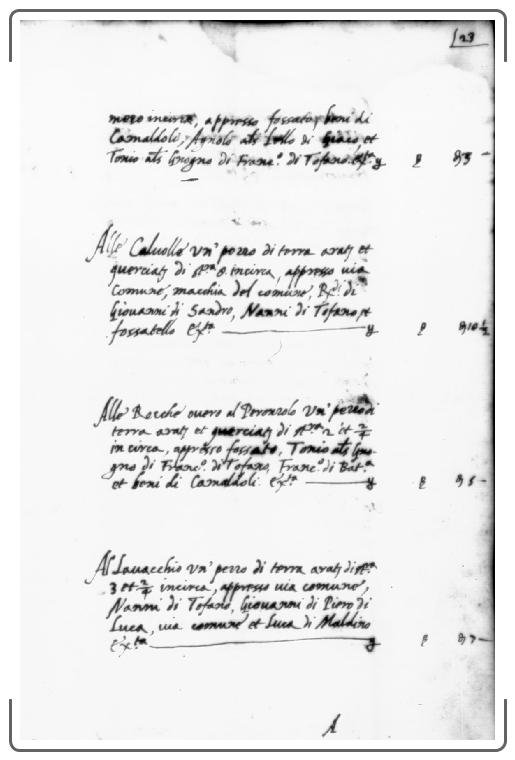 23
mero incirca, appresso fossato, beni di
Camaldoli, Agnolo als Lello di Giaco, et
Tonio als Gnogno di Franc.o di Tofano, &xa. y
Alle Caluolle Vn' pezzo di terra aratj et
querciatj di st.ra 8 incirca, appresso uia
Comune, macchia del comune, di
Giouanni di Sandro, Nanni di Tofano, et
fossatello &xa y 10 1/2
Alle Rocche ouero al Peronzolo Vn' pezzo di
terra aratj et querciatj di st.ra 2 et 2/4
incirca, appresso fossato, Tonio als Gno-
gno di Franc.o di Tofano, Franc.o di Bat.a
et beni di Camaldoli &xa y 5
Al Lauacchio Vn' pezzo di terra aratj di st.ra
3 et 2/4 incirca, appresso uia comune,
Nanni di Tofano, Giouanni di Piero di
Luca, uia comune et Luca di Maldino
&xa y 7
A